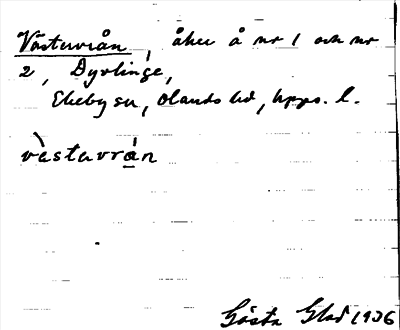 Västervrån, åker å nr 1 och nr
2, Dyvlinge,
Ekeby sn, Olands hd, Upps. l.
vàstavrån
Gösta Glad 1936